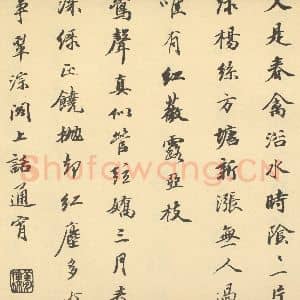 人是春禽浴水時陰〻一片
綠楊絲方塘新漲無人過
唯有紅薇露亞枝
鶯聲真似管絃嬌三月春
深綠正饒抛却紅塵多少
事翠深閣上話通宵
Shufawang.cn